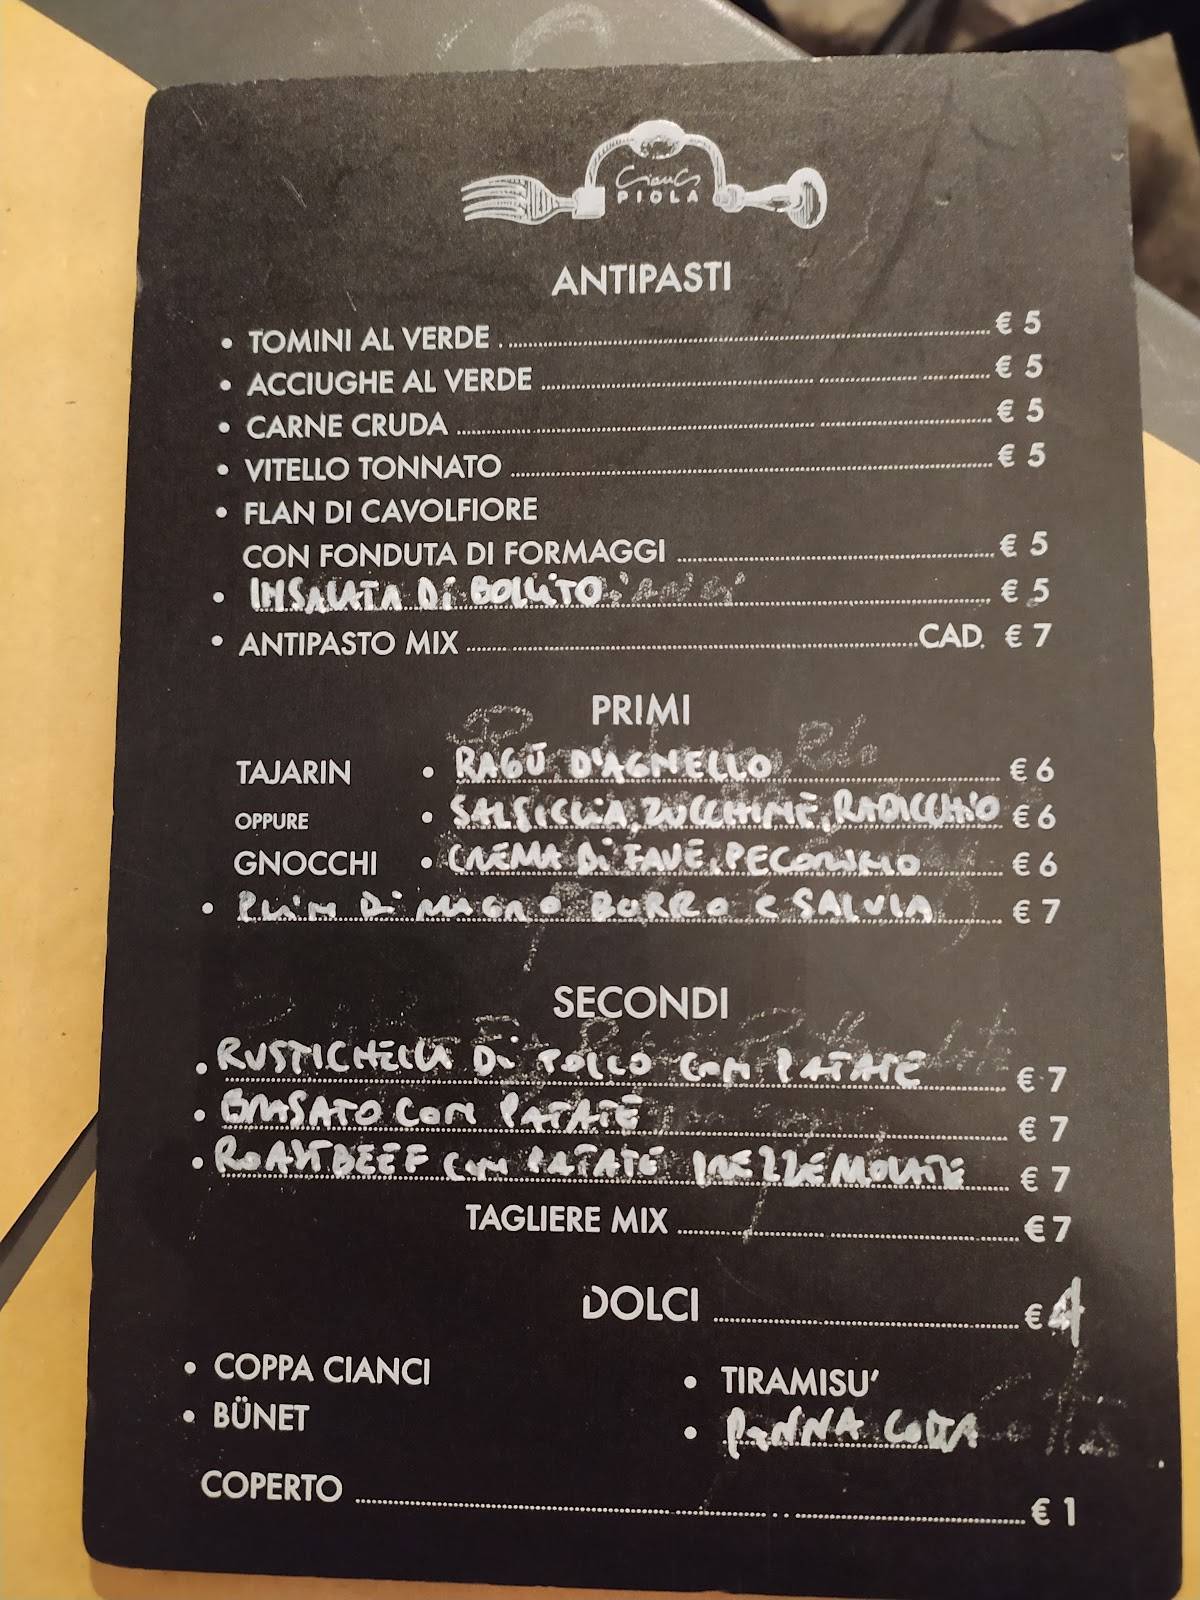 Cianci
PIOLA
ANTIPASTI
• TOMINI AL VERDE € 5
• ACCIUGHE AL VERDE € 5
• CARNE CRUDA € 5
• VITELLO TONNATO € 5
• FLAN DI CAVOLFIORE
CON FONDUTA DI FORMAGGI € 5
• INSALATA Di BOLLiTO € 5
• ANTIPASTO MIX CAD. € 7
PRIMI
TAJARIN • RAGÙ D'AGNELLO € 6
OPPURE • SALSICCIA, ZUCCHINE, RADICCHIO € 6
GNOCCHI • CREMA Di FAVE, PECORINO € 6
• PLIN Di MAGRO BURRO E SALVIA € 7
SECONDI
• RUSTICHELLA Di POLLO CON PATATE € 7
• BRASATO CON PATATE € 7
• ROASTBEEF CON PATATE PREZZEMOLATE € 7
TAGLIERE MIX € 7
DOLCI € 4
• COPPA CIANCI • TIRAMISU'
• BÜNET • PANNA COTTA
COPERTO € 1